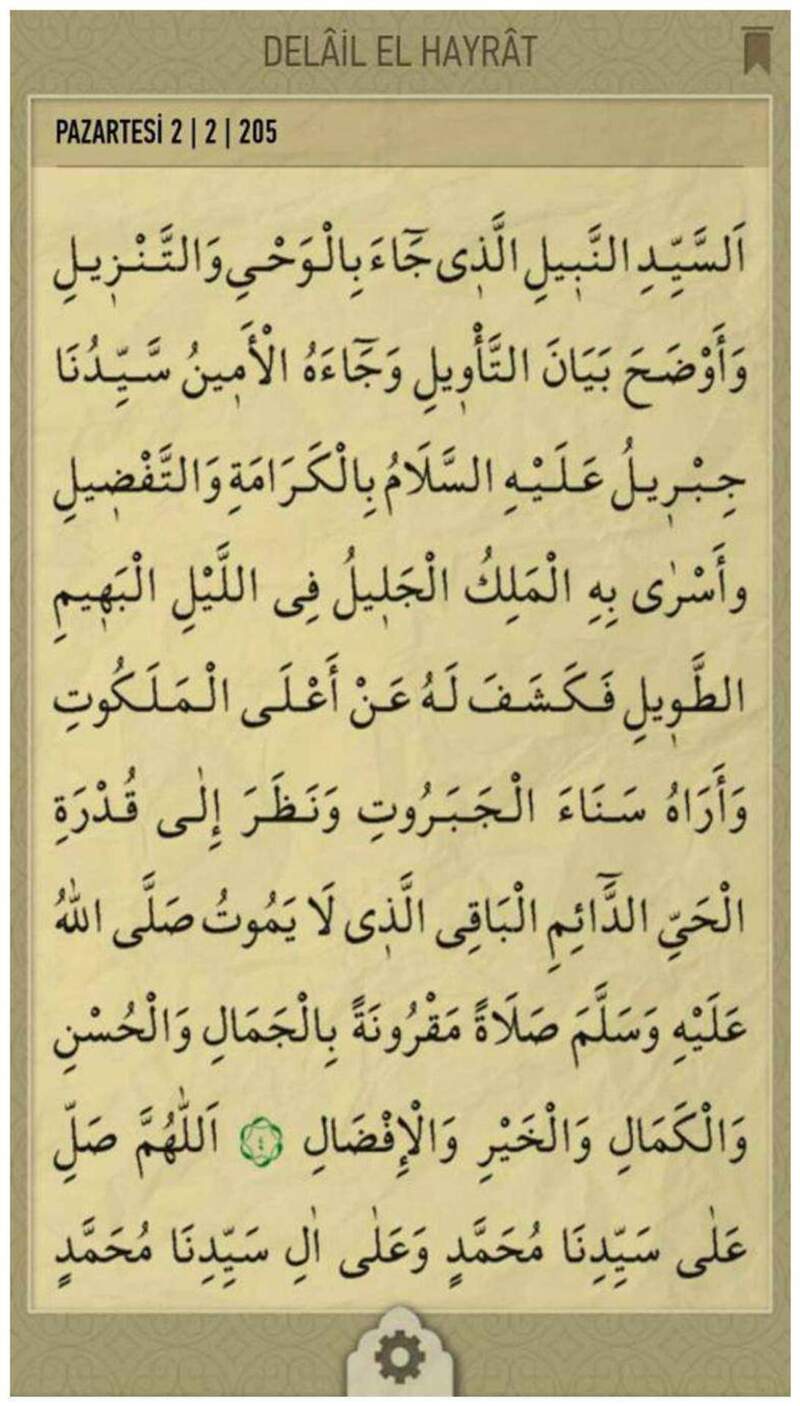 DELÂİL EL HAYRÂT
PAZARTESİ 2 | 2 | 205
اَلسَّيِّدِ النَّبِيلِ الَّذِى جَٓاءَ بِالْوَحْيِ وَالتَّنْزِيلِ
وَأَوْضَحَ بَيَانَ التَّأْوِيلِ وَجَٓاءَهُ الْأَمِينُ سَّيِّدُنَا
جِبْرِيلُ عَلَيْهِ السَّلَامُ بِالْكَرَامَةِ وَالتَّفْضِيلِ
وأَسْرٰى بِهِ الْمَلِكُ الْجَلِيلُ فِى اللَّيْلِ الْبَهِيمِ
الطَّوِيلِ فَكَشَفَ لَهُ عَنْ أَعْلَى الْمَلَكُوتِ
وَأَرَاهُ سَنَاءَ الْجَبَرُوتِ وَنَظَرَ إِلٰى قُدْرَةِ
الْحَيِّ الدَّٓائِمِ الْبَاقِى الَّذِى لَا يَمُوتُ صَلَّى اللهُ
عَلَيْهِ وَسَلَّمَ صَلَاةً مَقْرُونَةً بِالْجَمَالِ وَالْحُسْنِ
وَالْكَمَالِ وَالْخَيْرِ وَالْإِفْضَالِ ٤ اَللّٰهُمَّ صَلِّ
عَلٰى سَيِّدِنَا مُحَمَّدٍ وَعَلٰى اٰلِ سَيِّدِنَا مُحَمَّدٍ